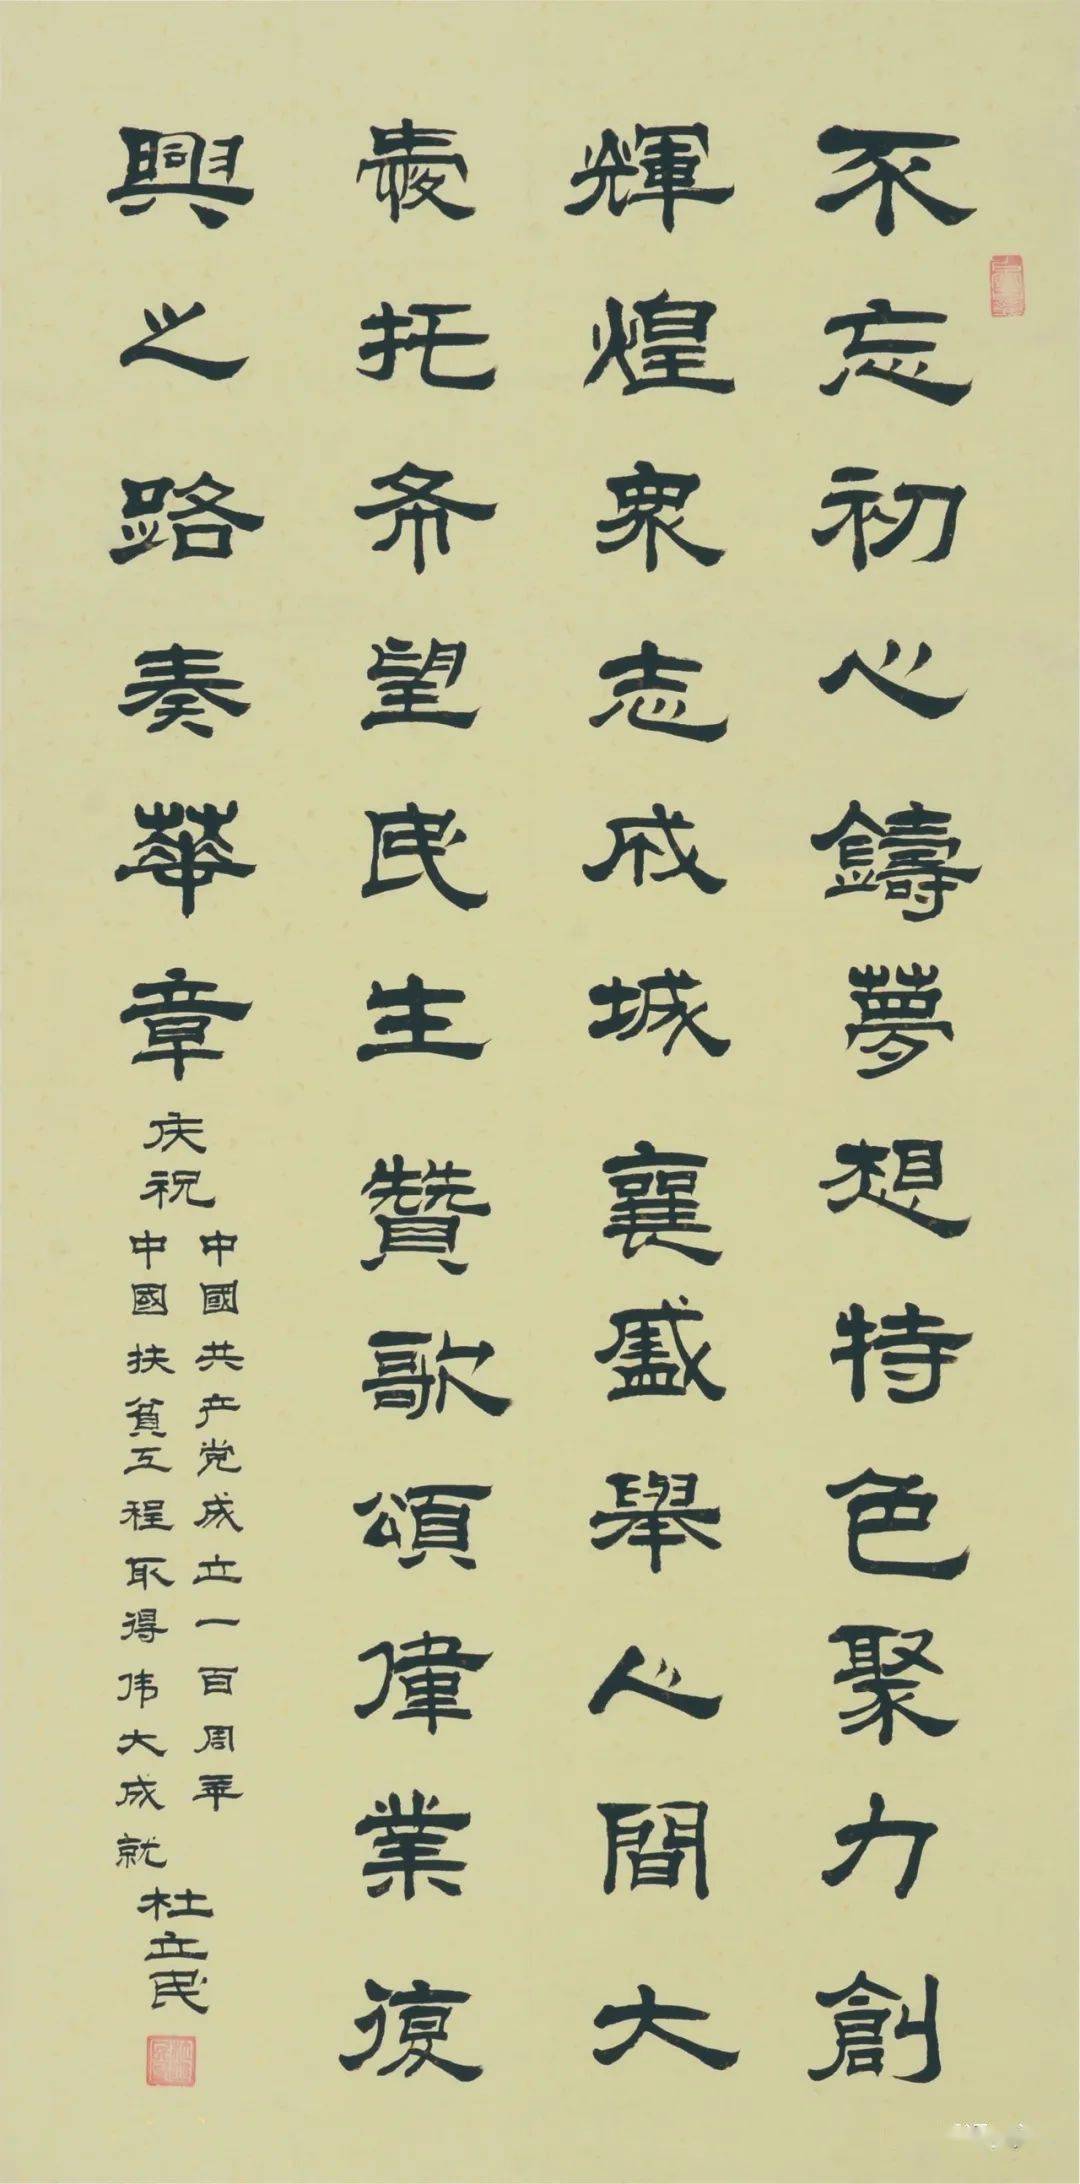 不忘初心鑄夢想特色聚力創
輝煌衆志成城襄盛舉人間大
愛托希望民生贊歌頌偉業復
興之路奏華章
庆祝
中國共产党成立一百周年
中國扶貧工程取得伟大成就
杜立民